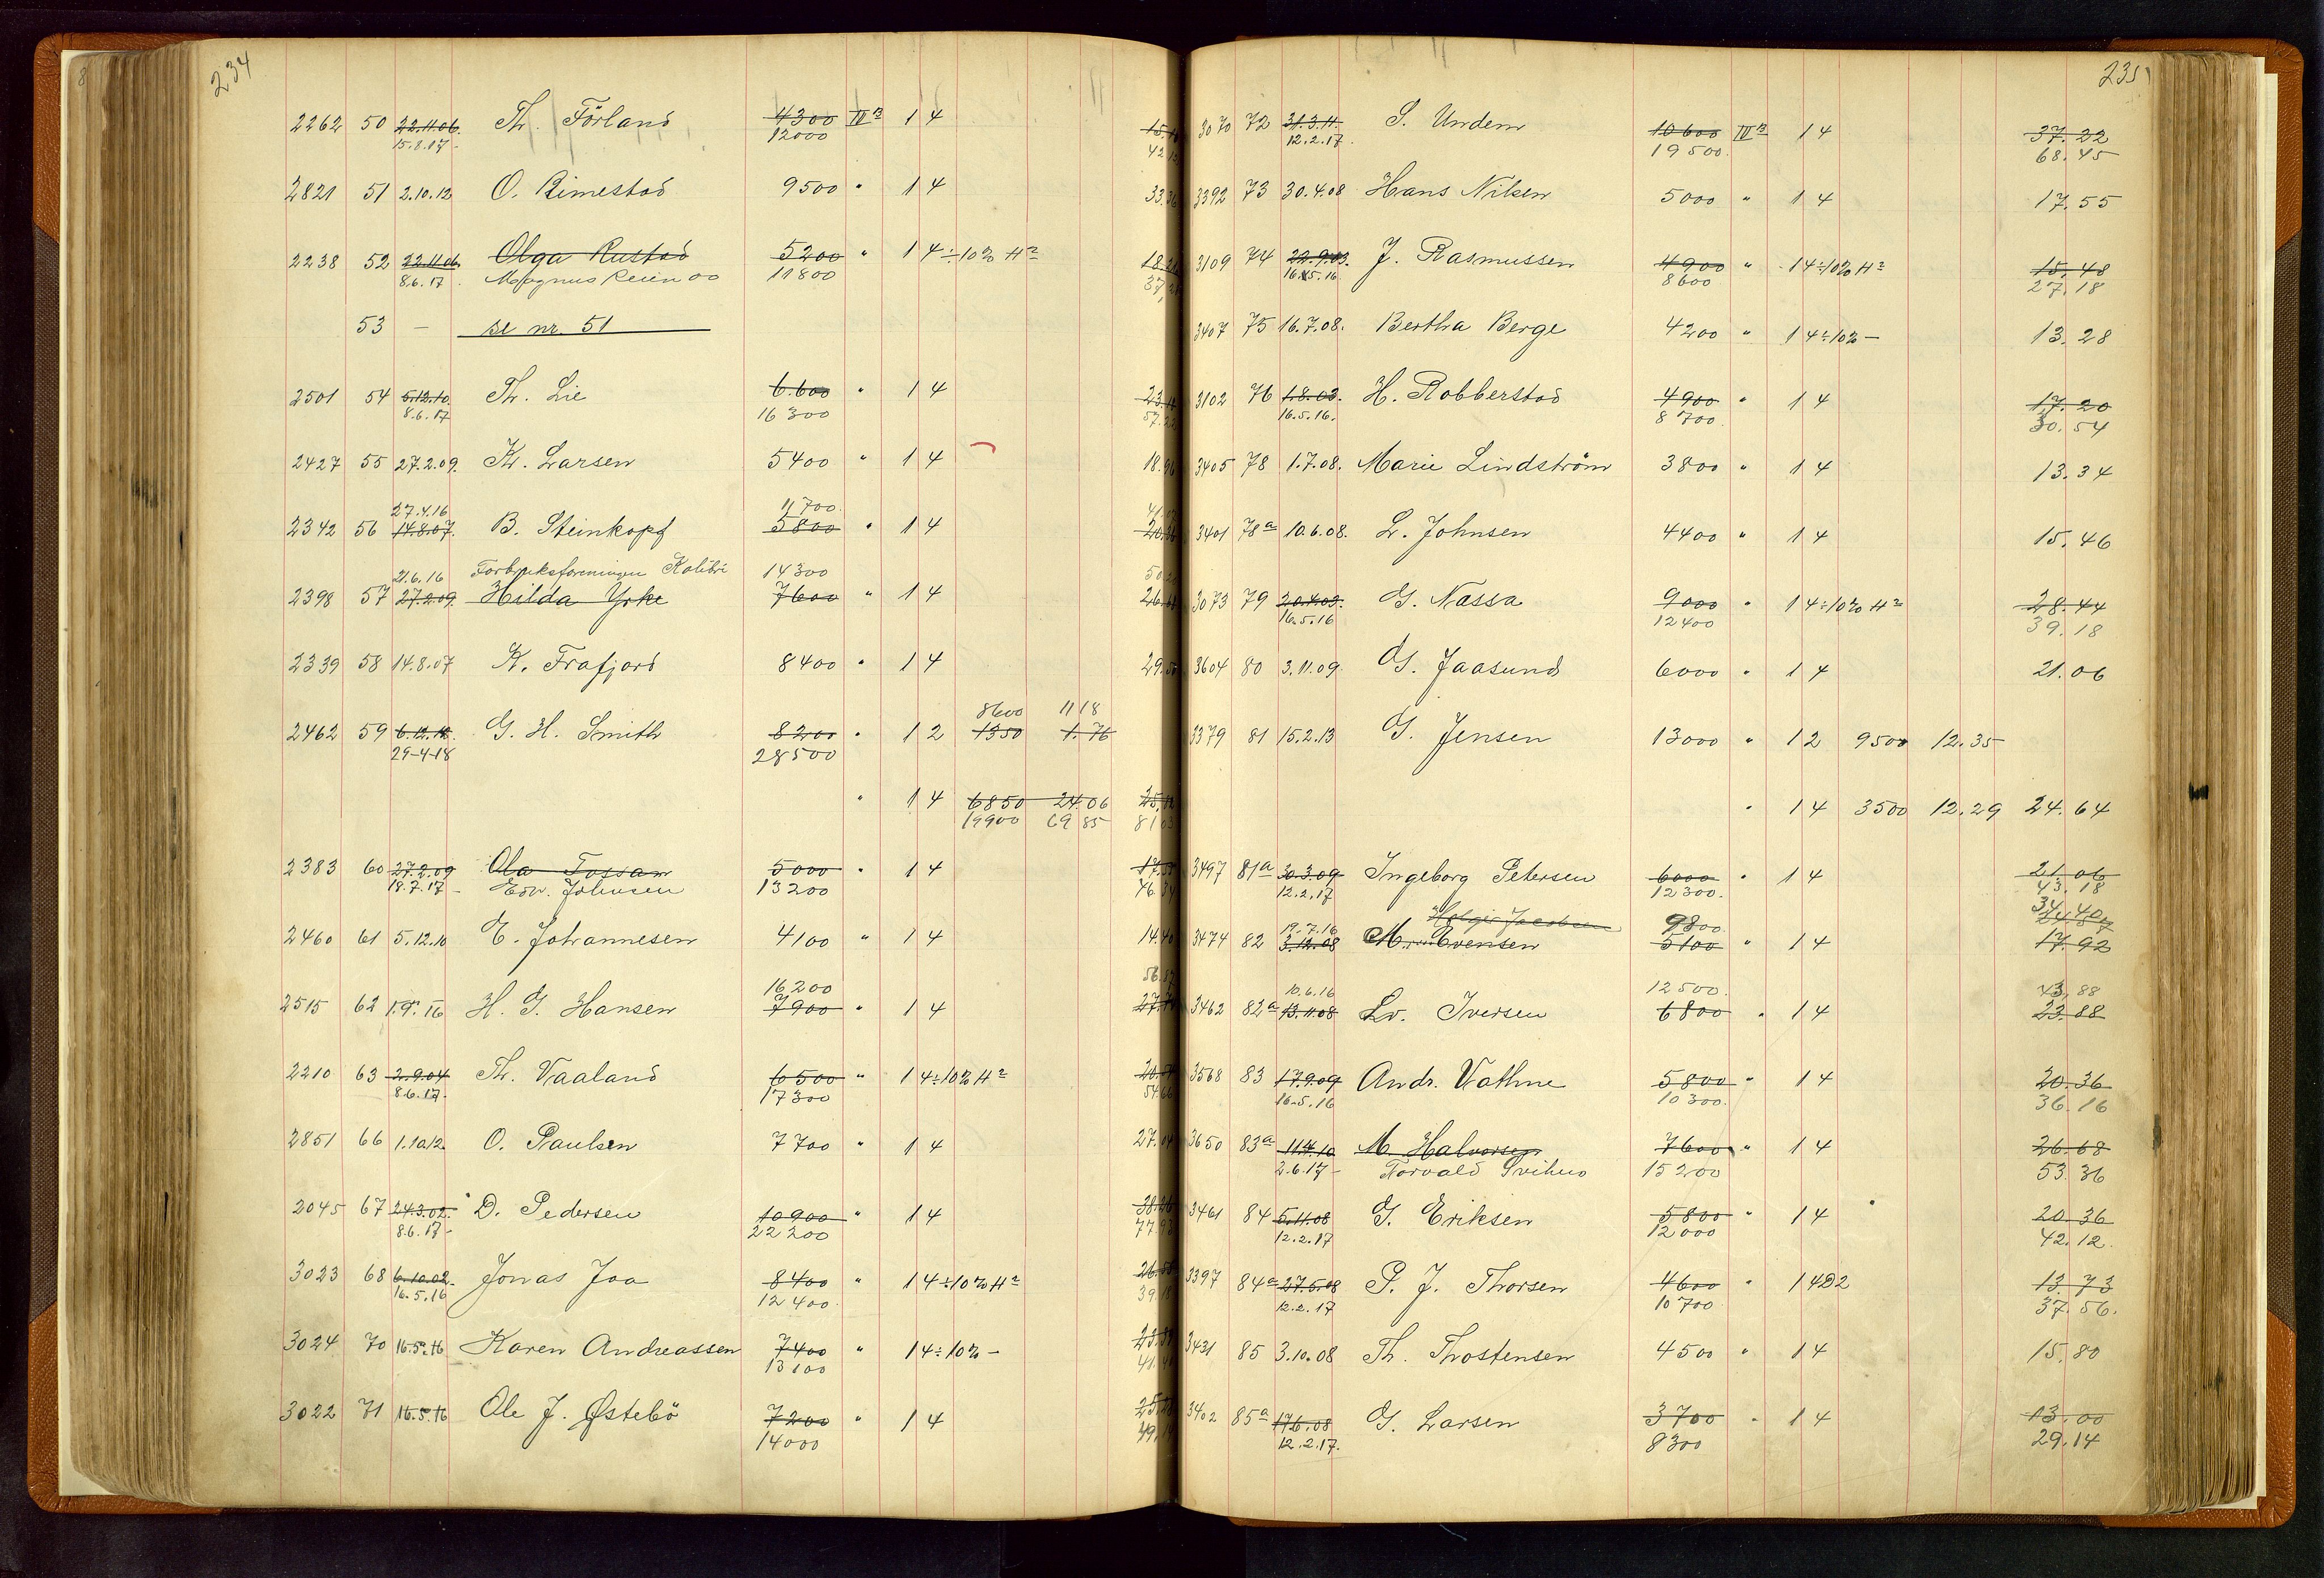 234
2262 50 22.11.06. Th. Förland 4300 IV B 1 4
15.8.17- 12000
2821 51 2.10.12 O. Rimestad 9500 " 1 4 33.36
2238 52 22.11.06. Olga Rustad 5200 " 1 4÷10% H
8.6.17. Magnus 11800
53 — se nr. 51
2501 54 5.12.10. Th. Lie 6600 " 1 4
8.6.17 16300
2427 55 27.2.09. K. Larsen 5400 " 1 4 18.96
27.4.16 11700
2342 56 14.8.07. B. Steinkopf 5800 " 1 4
21.6.16 Forbruksforeningen Kolibri 14300
2398 57 27.2.09. Hilda Yrke 7600 " 1 4
2339 58 14.8.07 K. Frafjord 8400 " 1 4
8600 11 18
2462 59 6.12.12. G. H. Smith 8200 " 1 2 1350 1.76
29-4-18 28500
" 1 4 6850 24.06
19900 69 85
2383 60 27.2.09 Ola Tossam 5000 " 1 4
18.7.17- Edv. Johnsen 13200
2460 61 5.12.10 E. Johannesen 4100 " 1 4 14.40
16200
2515 62 1.9.16 H. G. Hansen 7900 " 1 4
2210 63 2.9.04 Th. Vaaland 6500 " 1 4÷10% H
8.6.17. 17300
2851 66 1.10.12. O. Paulsen 7700 " 1 4 27.04
2045 67 24.3.02. D. Pedersen 10900 " 1 4
8.6.17- 22200
3023 68 6.10.02. Jonas Joa 8400 " 1 4÷10% H
16.5.16 12400.
3024 70 16.5.16 Karen Andreassen 7400 " 1 4÷10% -
13100
3022 71 16.5.16 Ole J. Østebö 7200 " 1 4
14000
235
3070 72 31.3.11. S. Undem 10600 IV B 1 4 37.22
12.2.17. 19500. 68.45
3392 73 30.4.08 Hans Nilsen 5000 " 1 4 17.55
3109 74 22.9.03. J. Rasmussen 4900 " 1 4÷10% H 15.48
16.5.16. 8600 27.18
3407 75 16.7.08. Bertha Berge 4200 " 1 4÷10% — 13.28
3102 76 1.8.03. H. Robberstad 4900 " 1 4 17.20
16.5.16. 8700. 30.54
3405 78 1.7.08. Marie Lindström 3800 " 1 4 13.34
3401 78a 10.6.08. L. Johnsen 4400 " 1 4 15.46
3073 79 20.4.03. G. Nassa 9000 " 1 4÷10% H 28.44
16.5.16 12400 39.18
3604 80 3.11.09. G. Jaasund 6000 " 1 4 21.06
3379 81 15.2.13 G. Jensen 13000 " 1 2 9500 12.35
" 1 4 3500 12.29 24.64
3497 81a 20.3.09 Ingeborg Petersen 6000 " 1 4 21.06
12.2.17 12300. 43.18
Holger Jacobsen 9800 34.40
3474 82 3.12.08 M. Evensen 5100 " 1 4 17.92
10.6.16 12500. 43.88
3462 82a 13.11.08 Lv. Iversen 6800 " 1 4 23.88
3568 83 17.9.09 Andr. Vathne 5800 " 1 4 20.36
16.5.16 10300. 36.16
3650 83a 11.4.10 M. Halvorsen 7600 " 1 4 26.68
2.6.17- Torvald Svihus 15200 53.36
3461 84 5.11.08 G. Eriksen 5800 " 1 4 20.36
12.2.17 12000 42.12.
3397 84a 27.5.08 P. J. Thorsen 4600 " 1 4D2 13.73
12.2.17 10700. 37.56.
3431 85 3.10.08 Th. Thostensen 4500 " 1 4 15.80
3402 85a 17.6.08 G. Larsen 3700 " 1 4 13.00
12.2.17. 8300 29.14